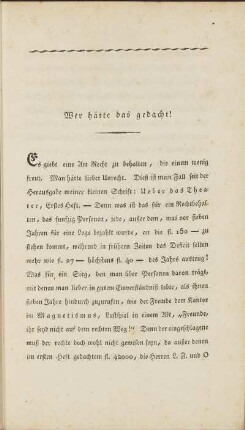 Wer hätte das gedacht!
Es giebt eine Art Recht zu behalten, die einen wenig
freut. Man hätte lieber Unrecht. Dieß ist mein Fall seit der
Herausgabe meiner kleinen Schrift: Ueber das Thea-
ter, Erstes Heft. — Denn was ist das für ein Rechtbehal-
ten, das funfzig Personen, jede, außer dem, was vor sieben
Jahren für eine Loge bezahlt wurde, an die fl. 160 — zu
stehen kommt, während in frühern Zeiten das Deficit selten
mehr wie fl. 27 — höchstens fl. 40 — das Jahr austrug!
Was für ein Sieg, den man über Personen davon trägt,
mit denen man lieber in gutem Einverständniß lebte, als ihnen
sieben Jahre hindurch zuzurufen, wie der Freund dem Kantor
im Magnetismus, Lustspiel in einem Akt, „Freunde,
ihr seyd nicht auf dem rechten Weg!" Denn der eingeschlagene
muß der rechte doch wohl nicht gewesen seyn, da außer denen
im ersten Heft gedachten fl. 42000, die Herren L. F. und O